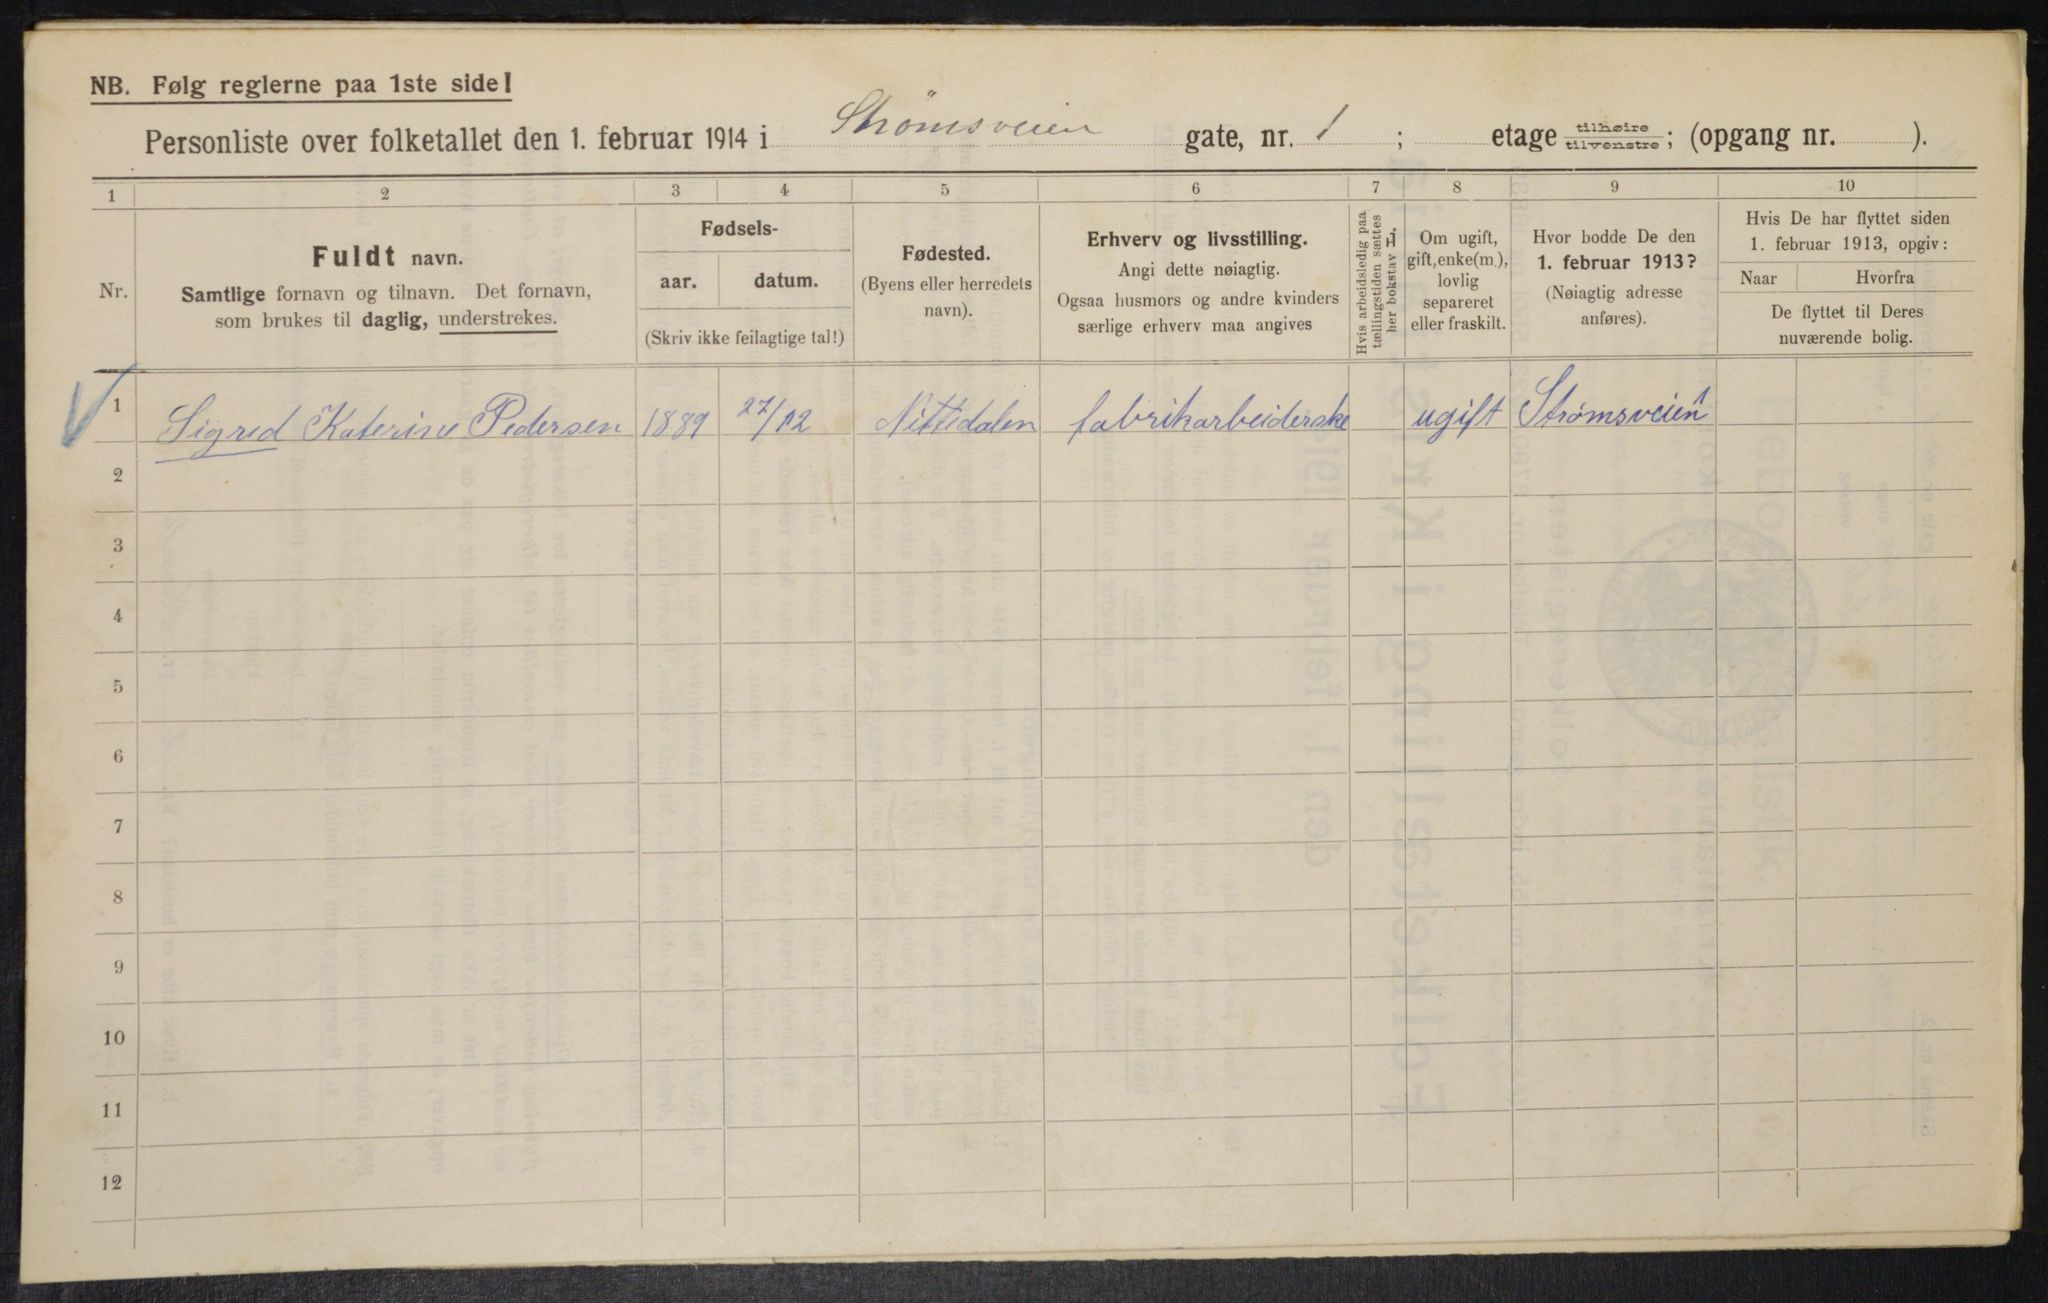 NB. Følg reglerne paa 1ste side!
Personliste over folketallet den 1. februar 1914 i Strømsveien gate, nr. 1 ; etage tilhøire tilvenstre ; (opgang nr. ).
1 2 3 4 5 6 7 8 9 10
Nr.
Fuldt navn.
Samtlige fornavn og tilnavn. Det fornavn,
som brukes til daglig, understrekes.
Fødsels-
aar. datum.
(Skriv ikke feilagtige tal!)
Fødested.
(Byens eller herredets
navn).
Erhverv og livsstilling.
Angi dette nøiagtig.
Ogsaa husmors og andre kvinders
særlige erhverv maa angives
Hvis arbeidsledig paa
tællingstiden sættes
her bokstav L,
Om ugift,
gift, enke(m.),
lovlig
separeret
eller fraskilt.
Hvor bodde De den
1. februar 1913?
(Nøiagtig adresse
anføres).
Hvis De har flyttet siden
1. februar 1913, opgiv:
Naar Hvorfra
De flyttet til Deres
nuværende bolig.
1 Sigred Katerine Pedersen 1889 27/12 Nittedalen fabrikarbeiderske ugift Strømsveien 1
2
3
4
5
6
7
8
9
10
11
12